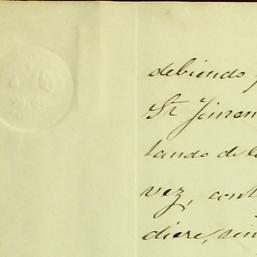 debiendo
Sr Jimen
tando de la
vez, cont
diere, sin